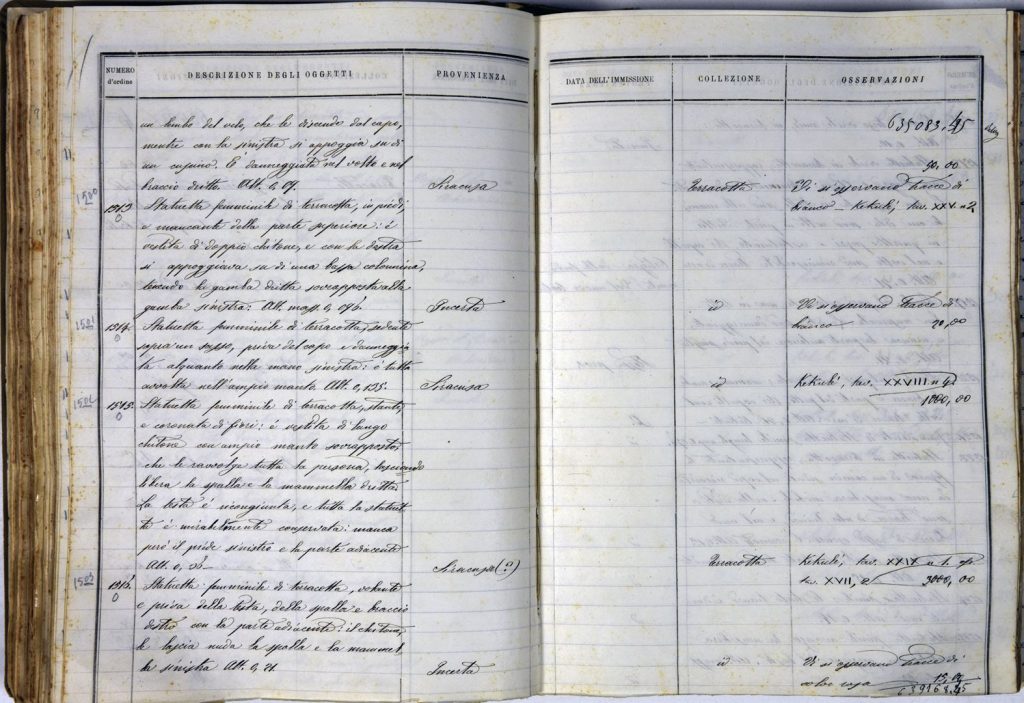 NUMERO d'ordine
DESCRIZIONE DEGLI OGGETTI
PROVENIENZA
un lembo del velo, che le discende dal capo,
mentre con la sinistra si appoggia su di
un cuscino. È danneggiata nel volto e nel
braccio dritto. Alt. 0,07. Siracusa
1500
1513 Statuetta femminile di terracotta, in piedi,
e mancante della parte superiore: è
vestita di doppio chitone, e con la destra
si appoggiava su di una bassa colonnina,
tenendo la gamba dritta sovrapposta alla
gamba sinistra: Alt. mass. 0,076. Incerta
1501
1514. Statuetta femminile di terracotta, sedente
sopra un sasso, priva del capo e danneggia
ta alquanto nella mano sinistra: è tutta
avvolta nell'ampio manto. Alt. 0,125. Siracusa
1502
1515. Statuetta femminile di terracotta, stante,
e coronata di fiori: è vestita di lungo
chitone con ampio manto sovrapposto,
che le ravvolge tutta la persona, lasciando
libera la spalla e la mammella dritta.
La testa è ricongiunta, e tutta la statuet
ta è mirabilmente conservata: manca
però il piede sinistro e la parte adiacente
Siracusa (?)
1503
1516. Statuetta femminile di terracotta, volante
e priva della testa, della spalla e braccio
destro con la parte adiacente: il chitone,
le lascia nuda la spalla e la mammel
la sinistra Alt. 0,21. Incerta
DATA DELL'IMMISSIONE
COLLEZIONE
OSSERVAZIONI
635083,45
50,00
Terracotta Vi si osservano tracce di
bianco — Kekulé, tav. XXV n 2
id Vi si osservano tracce di
bianco — 20,00
id Kekulé, tav. XXVIII n 4
1000,00
Terracotta Kekulé, tav. XXIX n 1. cf.
tav. XVII, 2 3000,00
id Vi si osservano tracce di
color rosa 15,00
639168,45